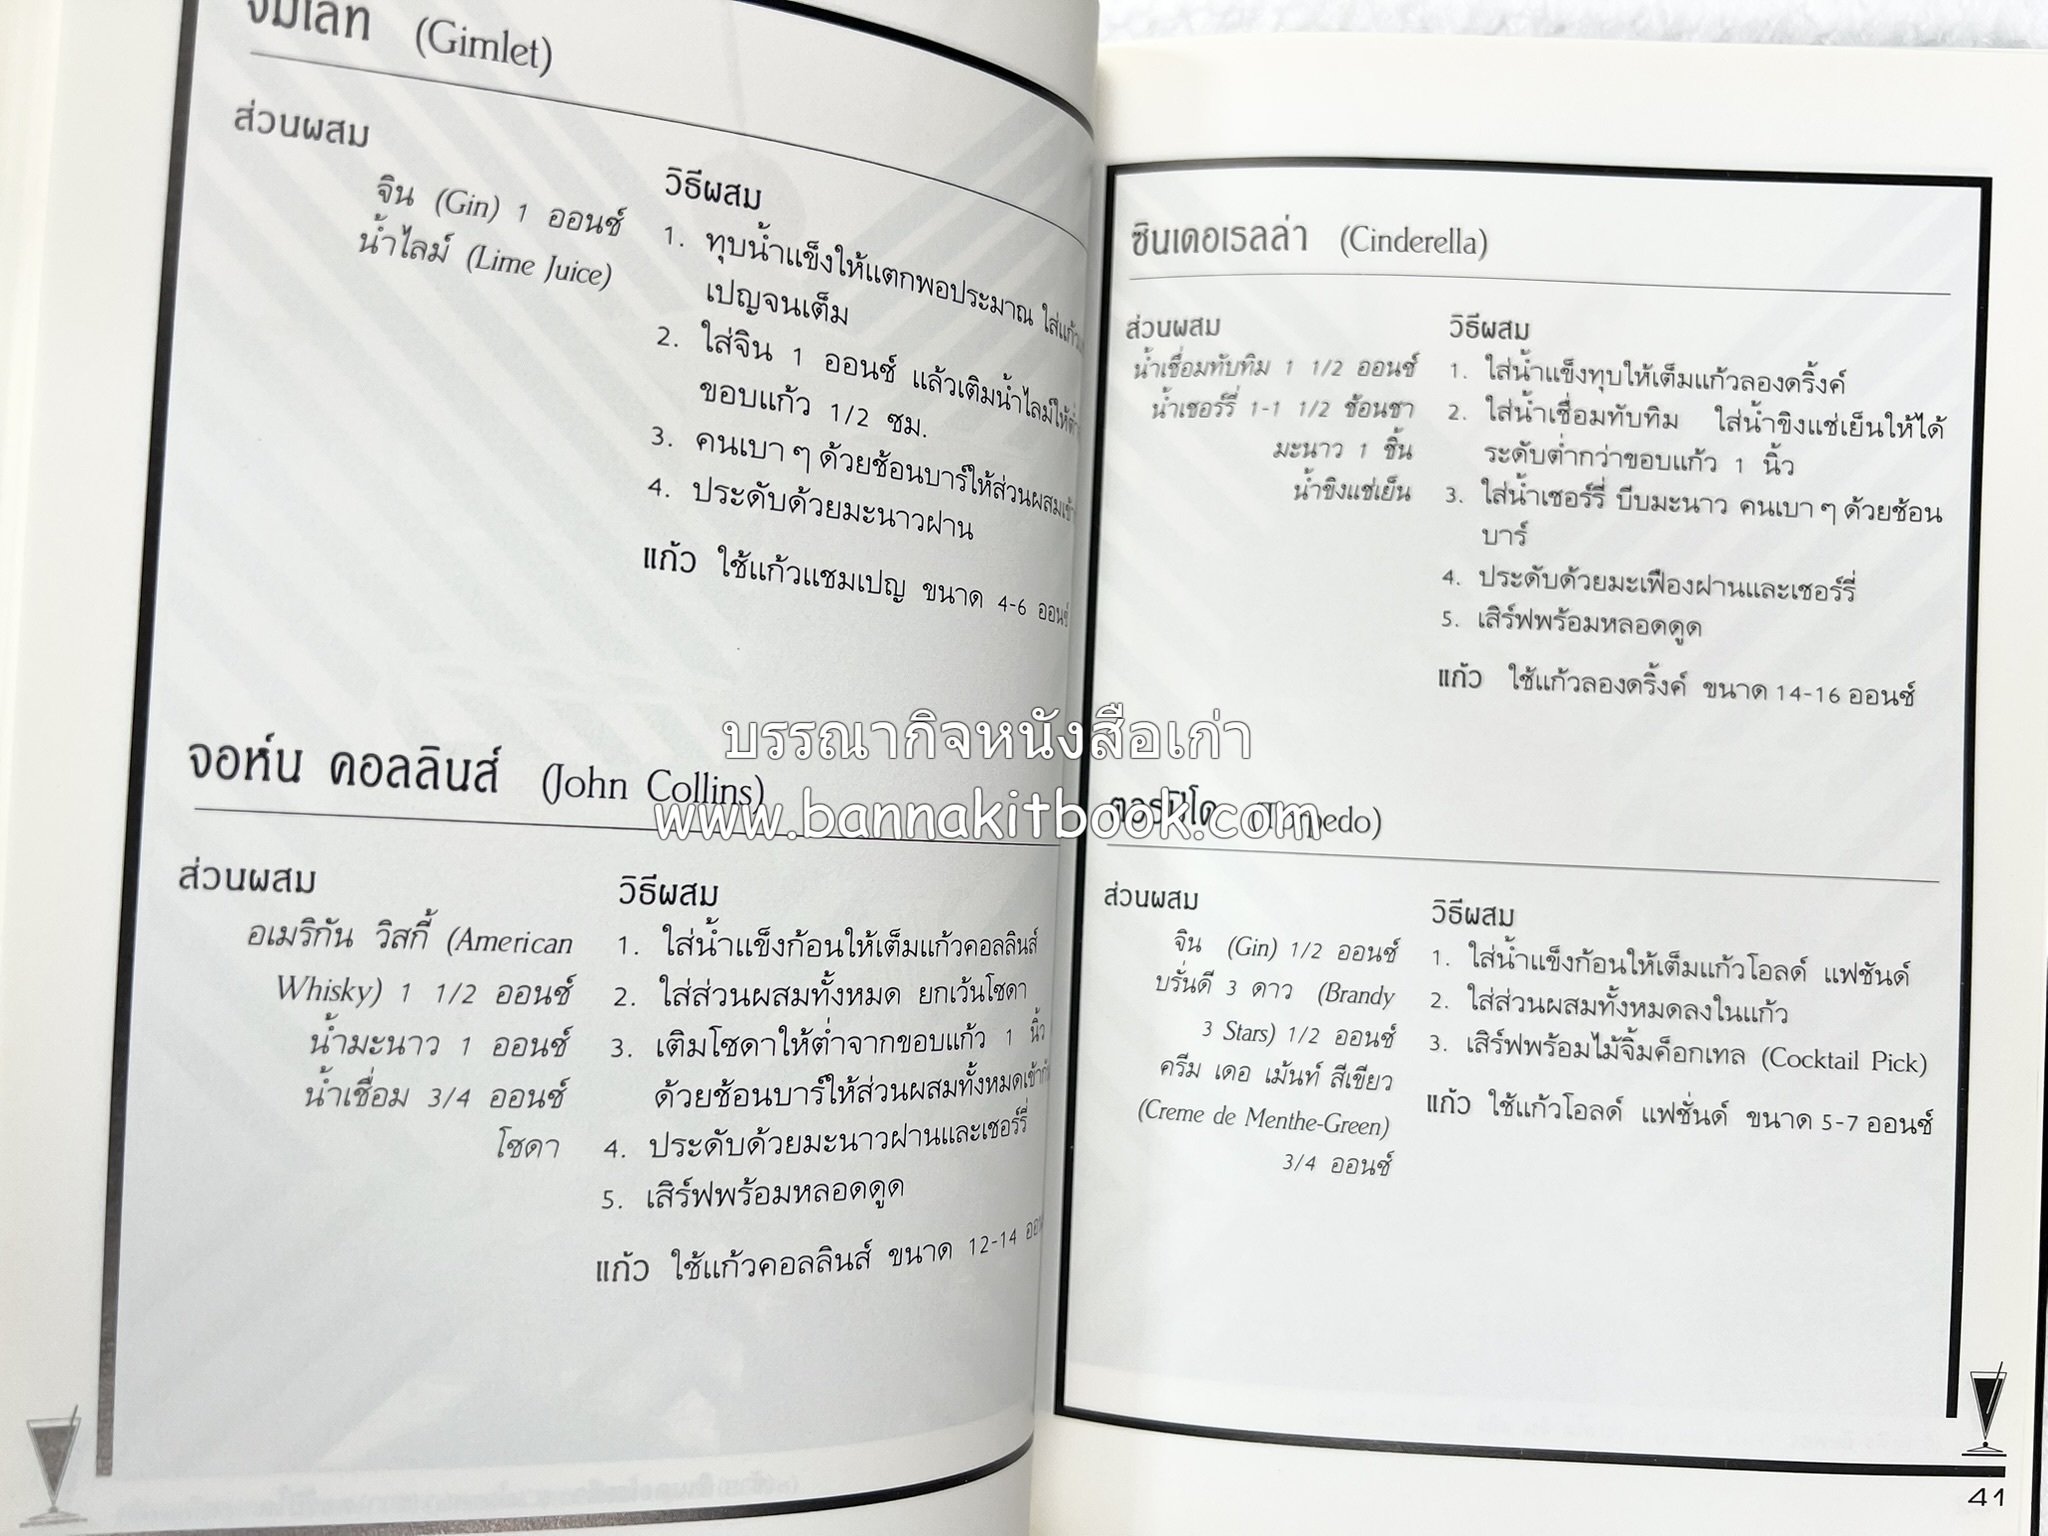 จิมเลท (Gimlet)
ส่วนผสม
จิน (Gin) 1 ออนซ์
น้ำไลม์ (Lime Juice)
วิธีผสม
1. ทุบน้ำแข็งให้แตกพอประมาณ ใส่แก้ว
เปญจนเต็ม
2. ใส่จิน 1 ออนซ์ แล้วเติมน้ำไลม์ให้ต่ำ
ขอบแก้ว 1/2 ซม.
3. คนเบา ๆ ด้วยช้อนบาร์ให้ส่วนผสมเข้า
4. ประดับด้วยมะนาวฝาน
แก้ว ใช้แก้วแชมเปญ ขนาด 4-6 ออนซ์
จอห์น คอลลินส์ (John Collins)
ส่วนผสม
อเมริกัน วิสกี้ (American
Whisky) 1 1/2 ออนซ์
น้ำมะนาว 1 ออนซ์
น้ำเชื่อม 3/4 ออนซ์
โซดา
วิธีผสม
1. ใส่น้ำแข็งก้อนให้เต็มแก้วคอลลินส์
2. ใส่ส่วนผสมทั้งหมด ยกเว้นโซดา
3. เติมโซดาให้ต่ำจากขอบแก้ว 1 นิ้ว
ด้วยช้อนบาร์ให้ส่วนผสมทั้งหมดเข้ากัน
4. ประดับด้วยมะนาวฝานและเชอร์รี่
5. เสิร์ฟพร้อมหลอดดูด
แก้ว ใช้แก้วคอลลินส์ ขนาด 12-14
บรรณากิจหนังสือเก่า
www.bannakitbook.com
ซินเดอเรลล่า (Cinderella)
ส่วนผสม
น้ำเชื่อมทับทิม 1 1/2 ออนซ์
น้ำเชอร์รี่ 1-1 1/2 ช้อนชา
มะนาว 1 ชิ้น
น้ำขิงแช่เย็น
วิธีผสม
1. ใส่น้ำแข็งทุบให้เต็มแก้วลองดริ้งค์
2. ใส่น้ำเชื่อมทับทิม ใส่น้ำขิงแช่เย็นให้ได้
ระดับต่ำกว่าขอบแก้ว 1 นิ้ว
3. ใส่น้ำเชอร์รี่ บีบมะนาว คนเบา ๆ ด้วยช้อน
บาร์
4. ประดับด้วยมะเฟืองฝานและเชอร์รี่
5. เสิร์ฟพร้อมหลอดดูด
แก้ว ใช้แก้วลองดริ้งค์ ขนาด 14-16 ออนซ์
ตอร์ปิโด (Torpedo)
ส่วนผสม
จิน (Gin) 1/2 ออนซ์
บรั่นดี 3 ดาว (Brandy
3 Stars) 1/2 ออนซ์
ครีม เดอ เม้นท์ สีเขียว
(Creme de Menthe-Green)
3/4 ออนซ์
วิธีผสม
1. ใส่น้ำแข็งก้อนให้เต็มแก้วโอลด์ แฟชันด์
2. ใส่ส่วนผสมทั้งหมดลงในแก้ว
3. เสิร์ฟพร้อมไม้จิ้มค็อกเทล (Cocktail Pick)
แก้ว ใช้แก้วโอลด์ แฟชั่นด์ ขนาด 5-7 ออนซ์
41